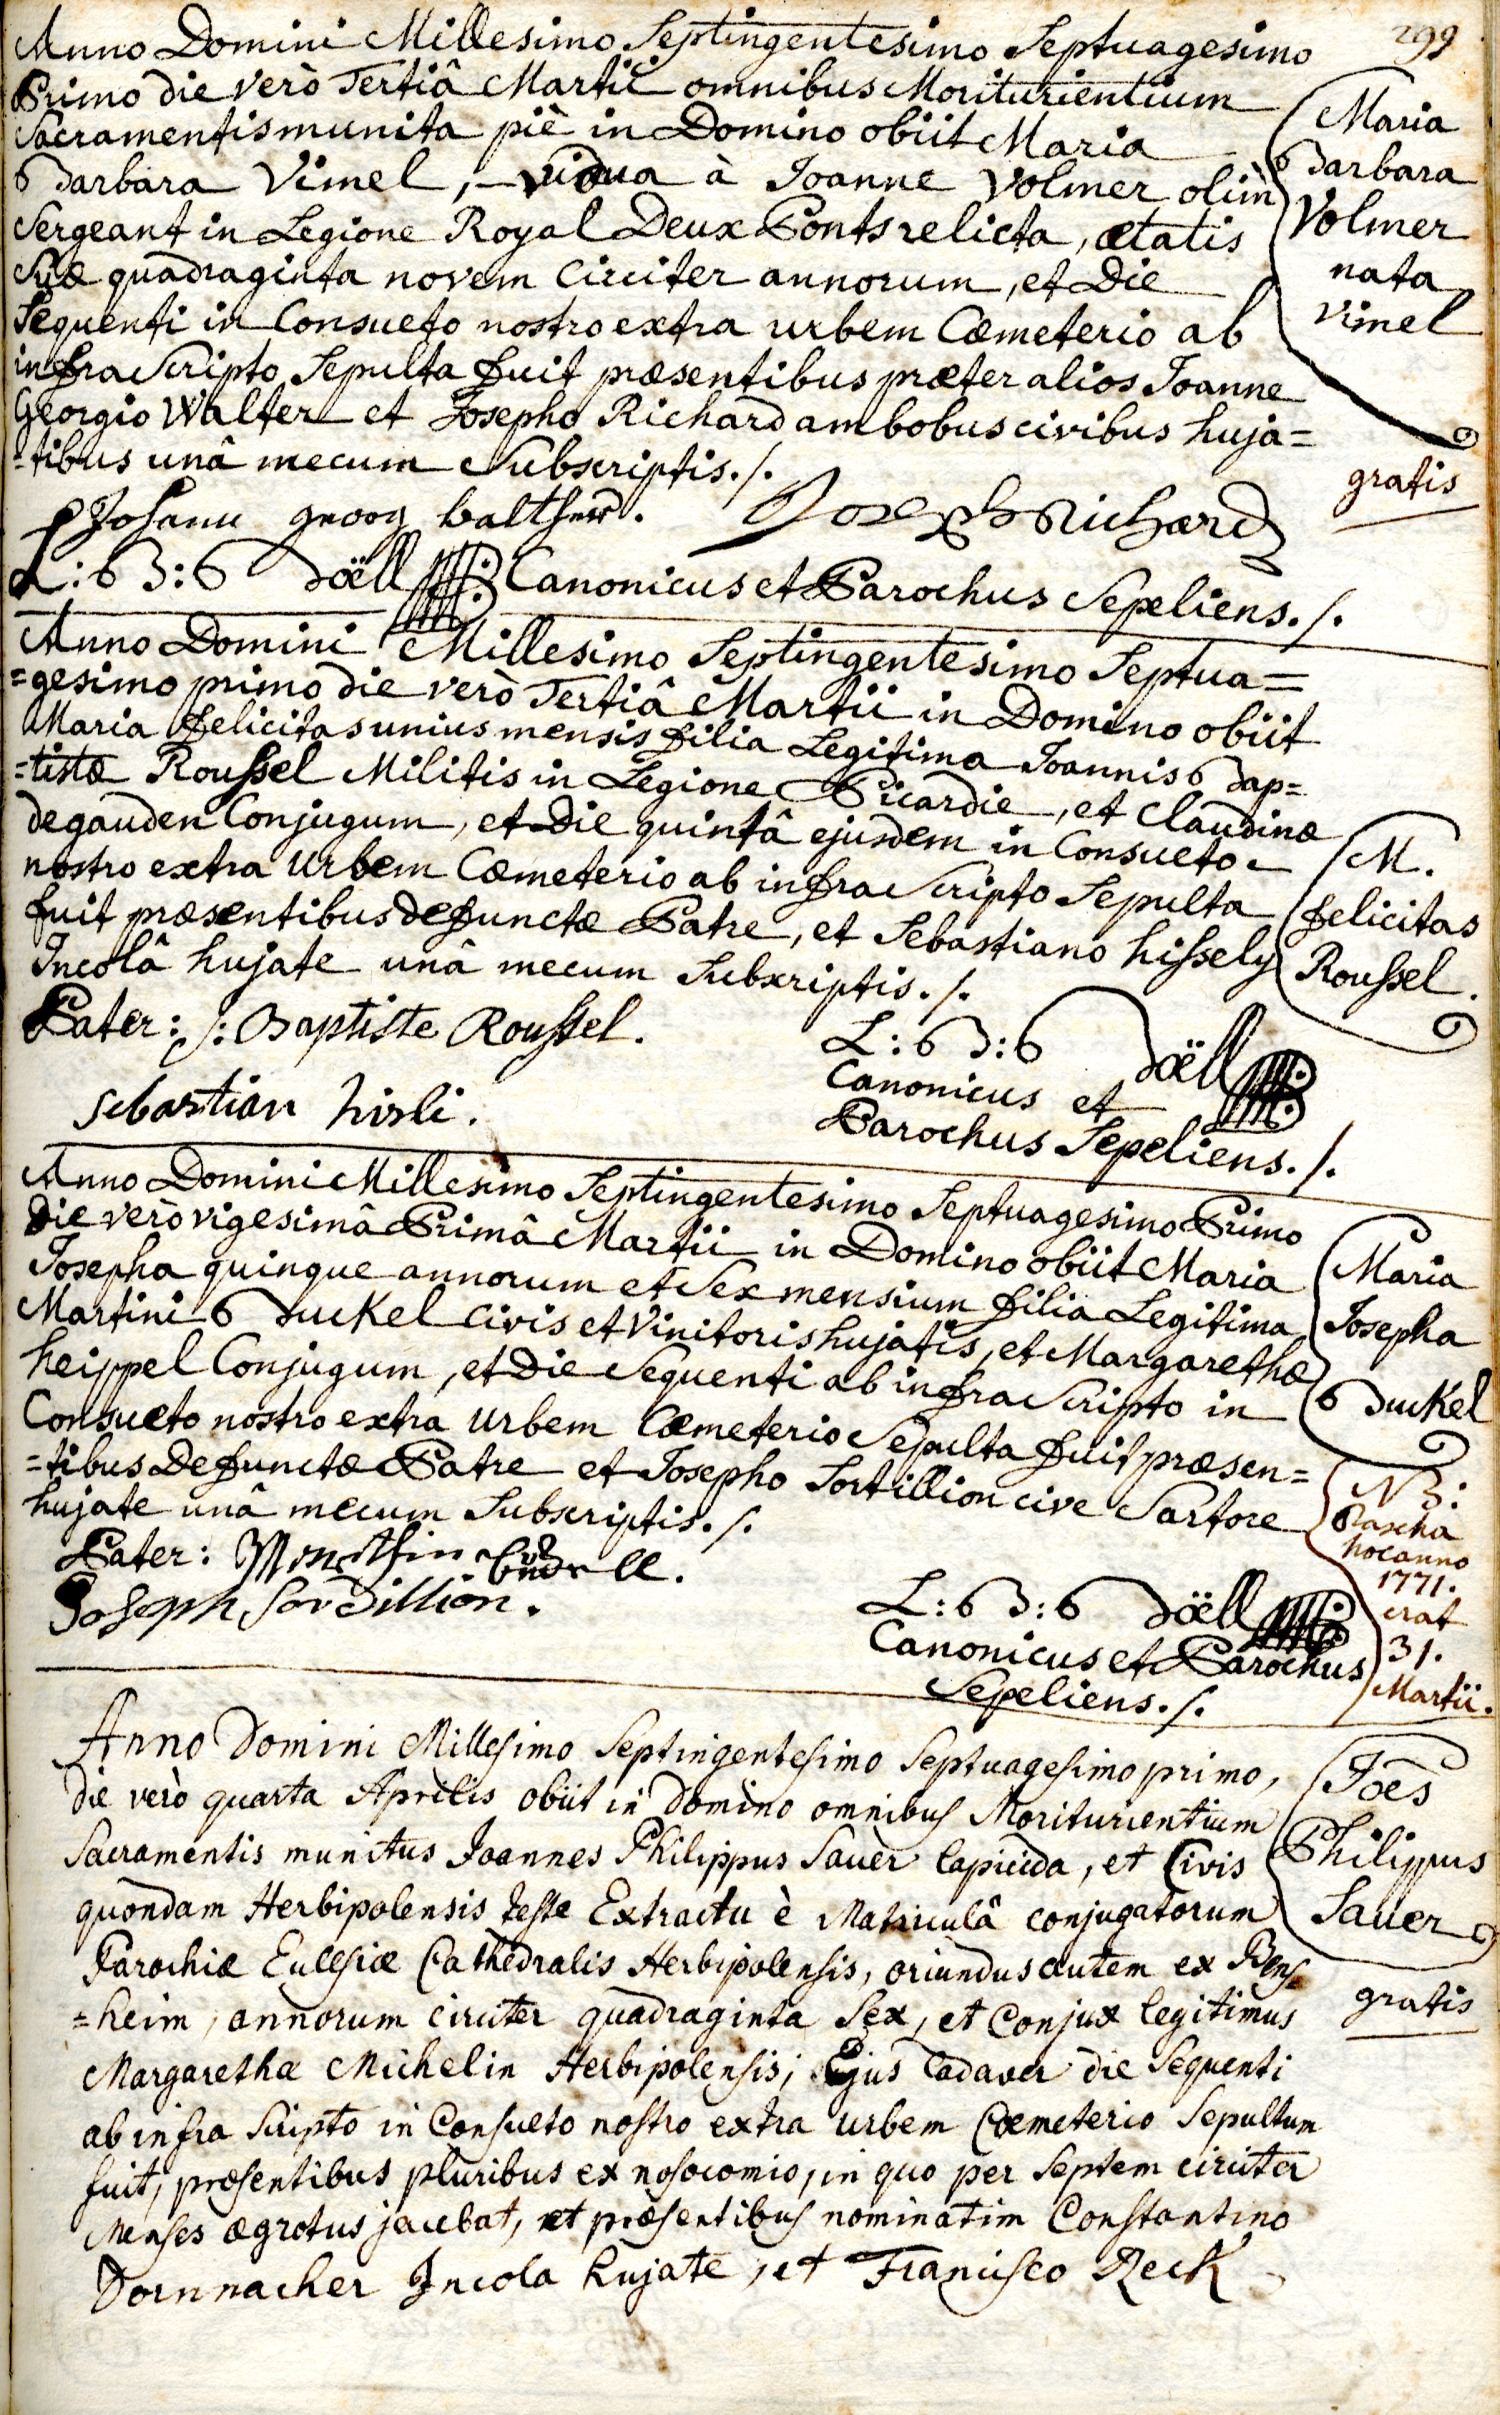 299
Anno Domini Millesimo Septingentesimo Septuagesimo
Primo die verò Tertiâ Martii omnibus Moriturientium
Sacramentis munita piè in Domino obiit Maria
Barbara Vimel, vidua à Joanne Volmer olim
Sergeant in Legione Royal Deux Ponts relicta, ætatis
suæ quadraginta novem Circiter annorum, et Die
Sequenti in Consueto nostro extra urbem Cœmeterio ab
infra Scripto Sepulta fuit præsentibus præter alios Joanne
Georgio Walter et Josepho Richard ambobus civibus huja=
=tibus unâ mecum Subscriptis ./.
Maria
Barbara
Volmer
nata
Vimel
gratis
Johann georg walther. Joseph Richard
L:B:B Döell Canonicus et Parochus Sepeliens ./.
Anno Domini Millesimo Septingentesimo Septua=
=gesimo primo die verò Tertiâ Martii in Domino obiit
Maria felicitas unius mensis filia Legitima Joannis Bap=
=tistæ Roussel Militis in Legione Picardie, et Claudinæ
degauden Conjugum, et Die quintâ ejusdem in Consueto
nostro extra Urbem Cœmeterio ab infra Scripto Sepulta
fuit præsentibus defunctæ Patre, et Sebastiano hissely
Incolâ hujate unâ mecum Subscriptis ./.
M.
felicitas
Roussel.
Pater: J: Baptiste Roussel.
Sebastian hisli.
L:B:B Döell
Canonicus et
Parochus Sepeliens ./.
Anno Domini Millesimo Septingentesimo Septuagesimo Primo
die verò vigesimâ Primâ Martii in Domino obiit Maria
Josepha quinque annorum et Sex mensium filia Legitima
Martini Buckel Civis et Vinitoris hujatis, et Margarethæ
heippel Conjugum, et Die Sequenti ab infra Scripto in
Consueto nostro extra Urbem Cœmeterio Sepulta fuit præsen=
=tibus Defunctæ Patre et Josepho Sortillion cive Sartore
hujate unâ mecum Subscriptis ./.
Maria
Josepha
Buckel
NB:
Pascha
hoc anno
1771.
erat
31.
Martii.
Pater:
Joseph Sordillion.
L:B:B Döell
Canonicus et Parochus
Sepeliens ./.
Anno Domini Millesimo Septingentesimo Septuagesimo primo,
die verò quarta Aprilis obiit in Domino omnibus Moriturientium
Sacramentis munitus Joannes Philippus Sauer Lapicida, et Civis
quondam Herbipolensis teste Extractu è Matriculâ conjugatorum
Parochiæ Ecclesiæ Cathedralis Herbipolensis, oriundus autem ex Rens
=heim, annorum circiter quadraginta Sex, et Conjux legitimus
Margarethæ Michelin Herbipolensis; Ejus Cadaver die Sequenti
ab infra Scripto in Consueto nostro extra Urbem Cœmeterio Sepultum
fuit, præsentibus pluribus ex nosocomio, in quo per Septem circiter
Menses ægrotus jacebat, et præsentibus nominatim Constantino
Dornnacher Incola hujate, et Francisco Reck
Joes
Philippus
Sauer
gratis